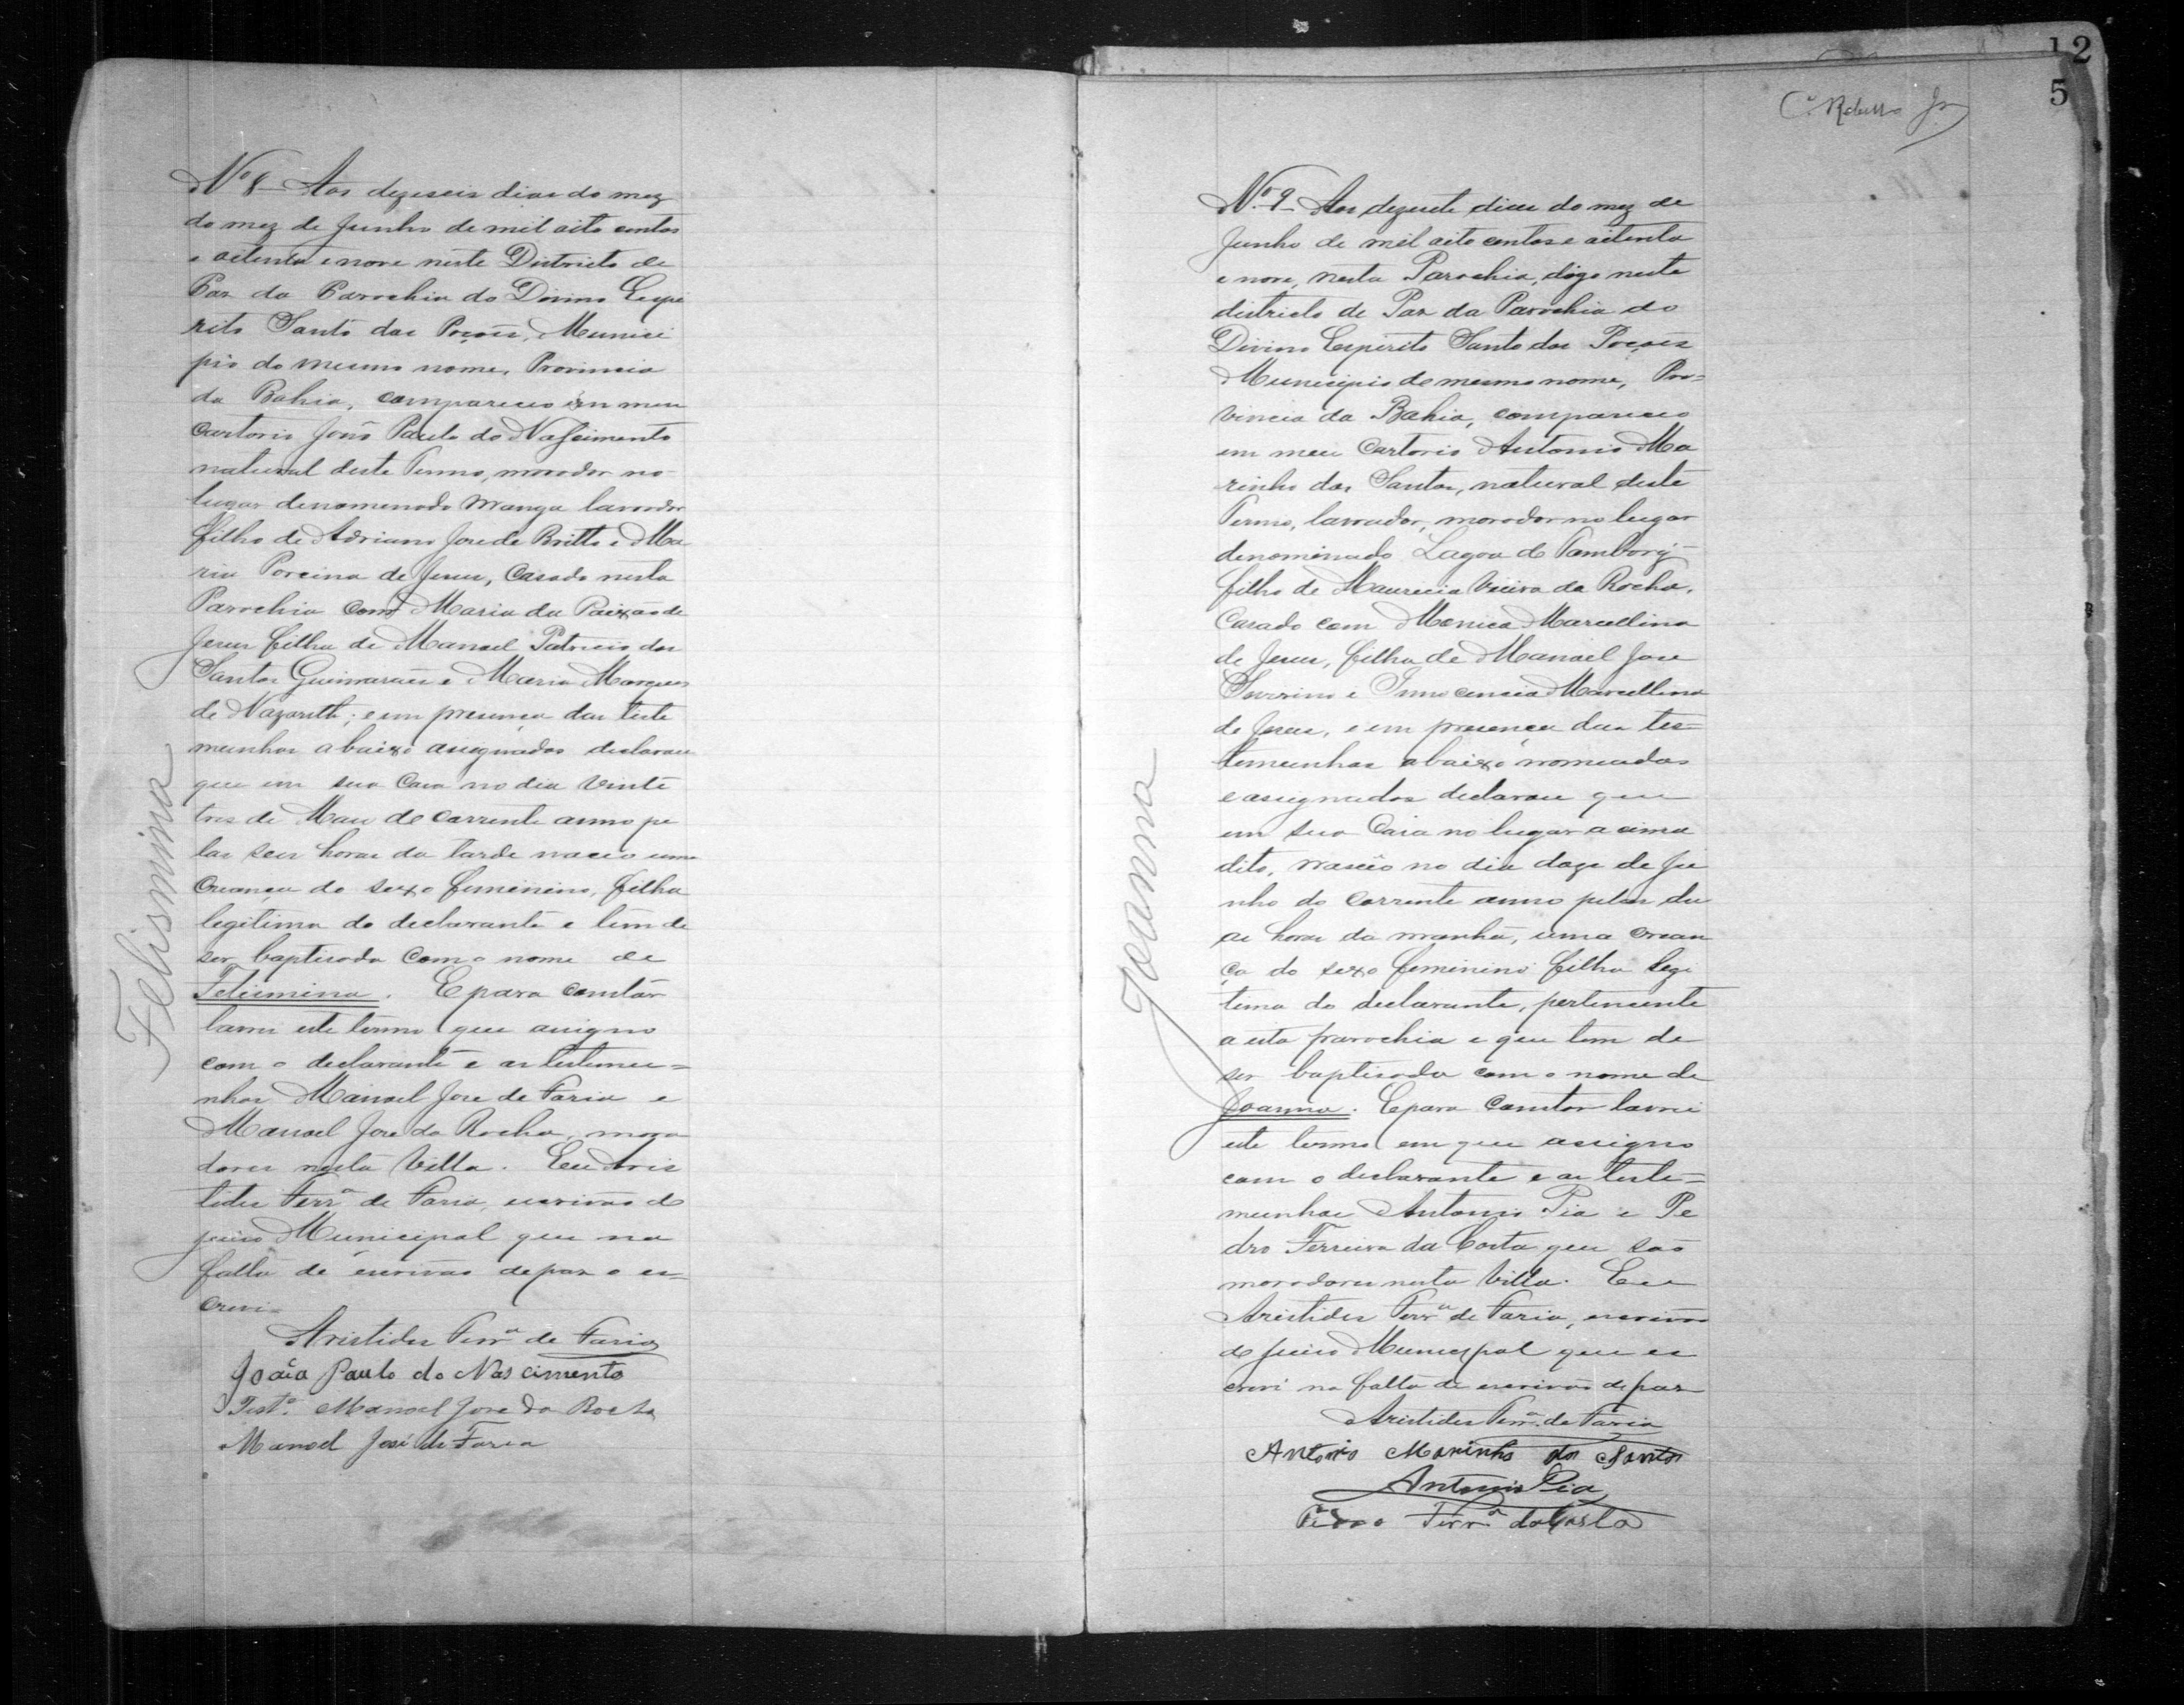 Nº 8 Aos dezeseis dias do mez
do mez de Junho de mil oito centos
e oitenta e nove neste Districto de
Paz da Parochia do Divino Espi
rito Santo dos Poções, Munici
pio do mesmo nome, Provincia
da Bahia, compareceo em meu
Cartorio João Paulo do Nascimento
natural deste Termo, morador no
lugar denomenado Manga lavrador
filho de Adriano Jose de Britto e Ma
ria Porcina de Jesus, Casado nesta
Parochia com Maria da Paixão de
Jesus filha de Manoel Patricio dos
Santos Guimarães e Maria Marques
de Nazareth; e em presença das teste
munhas abaixo assignados declarou
que em sua Casa no dia vinte
tres de Maio do corrente anno pe
las seis horas da tarde nasceo uma
Creança do sexo femenino, filha
legitima do declarante e tem de
ser baptisada com o nome de
Felismina. E para constár
lavrei este termo que assigno
com o declarante e as testemu=
nhas Manoel Jose de Faria e
Manoel Jose da Rocha, mora
dores nesta Villa. Eu Aris
tides Ferrª de Faria, escrivão do
juiso Municipal que na
falta de escrivão de paz o es=
crevi.
Aristides Ferrª de Faria
João Paulo do Nascimento
Testª. Manoel Jose da Rocha
Manoel José de Faria
Felismina
12
5
Nº 9 Aos dezesete dias do mez de
Junho de mil oito centos e oitenta
e nove, nesta Parochia, digo neste
districto de Paz da Parochia do
Divino Espirito Santo dos Poções
Municipio do mesmo nome, Pro=
vincia da Bahia, compareceo
em meu Cartorio Antonio Ma
rinho dos Santos, natural deste
Termo, lavrador, morador no lugar
denominado Lagoa do Tambory
filho de Mauricia Vieira da Rocha,
Casado com Monica Marcellina
de Jesus, filha de Manoel Jose
e Innocencia Marcellina
de Jesus, e em presença das tes=
temunhas abaixo nomeadas
e assignados declarou que
em sua Casa no lugar acima
dito, nasceo no dia doze de Ju
nho do corrente anno pelas du
as horas da manhã, uma crean
ça do sexo feminino filha legi
tima do declarante, pertencente
a esta parochia e que tem de
ser baptisada com o nome de
Joanna. E para constar lavrei
este termo em que assigno
com o declarante e as teste=
munhas Antonio Pia e Pe
dro Ferreira da Costa que são
moradores nesta Villa. Eu
Aristides Ferrª de Faria, escrivão
do juiso Municipal que es
crevi na falta de escrivão de paz
Aristides Ferrª. de Faria
Antonio Marinho dos Santos
Antonio Pia
Pedro Ferrª da Costa
Joanna